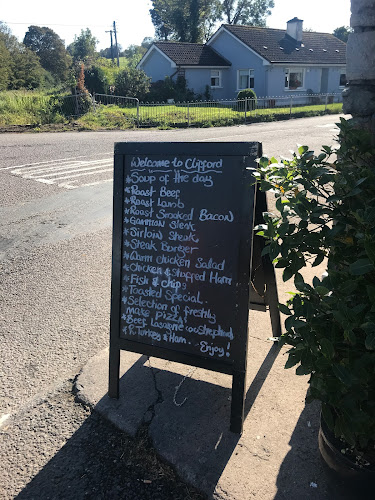 Welcome to Clifford
*Soup of the day
*Roast Beef
*Roast Lamb
*Roast Smoked Bacon
*Gammon Steak
*Sirlow Steak
*Steak Burger
*Warm Chicken Salad
*Chicken & Stuffed Ham
*Fish & Chips
*Toasted Special
*Selection of freshly
Make Pizza
*Beef Lasagne
*R. Turkey & Ham. -Enjoy!